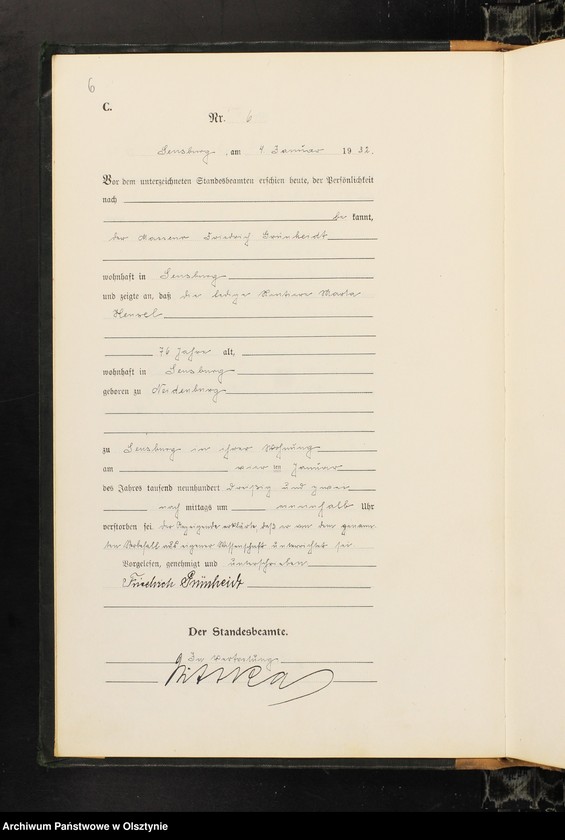 6
C.
Nr. 6
Sensburg, am 4 Januar 1932.
Vor dem unterzeichneten Standesbeamten erschien heute, der Persönlichkeit
nach
be kannt,
der Friedrich Grünheidt
wohnhaft in Sensburg
und zeigte an, daß die ledige Rentnere Marta
Hensel
76 Jahre alt,
wohnhaft in Sensburg
geboren zu Neidenburg
zu Sensburg in ihrer Wohnung
am vier ten Januar
des Jahres tausend neunhundert dreißig und zwei
nach mittags um Uhr
verstorben sei. Der Anzeigende erklärte, daß er von dem genann
ten Sterbefall aus eigener Wissenschaft unterrichtet sei
Vorgelesen, genehmigt und unterschrieben
Friedrich Grünheidt
Der Standesbeamte.
In Vertretung
Archiwum Państwowe w Olsztynie